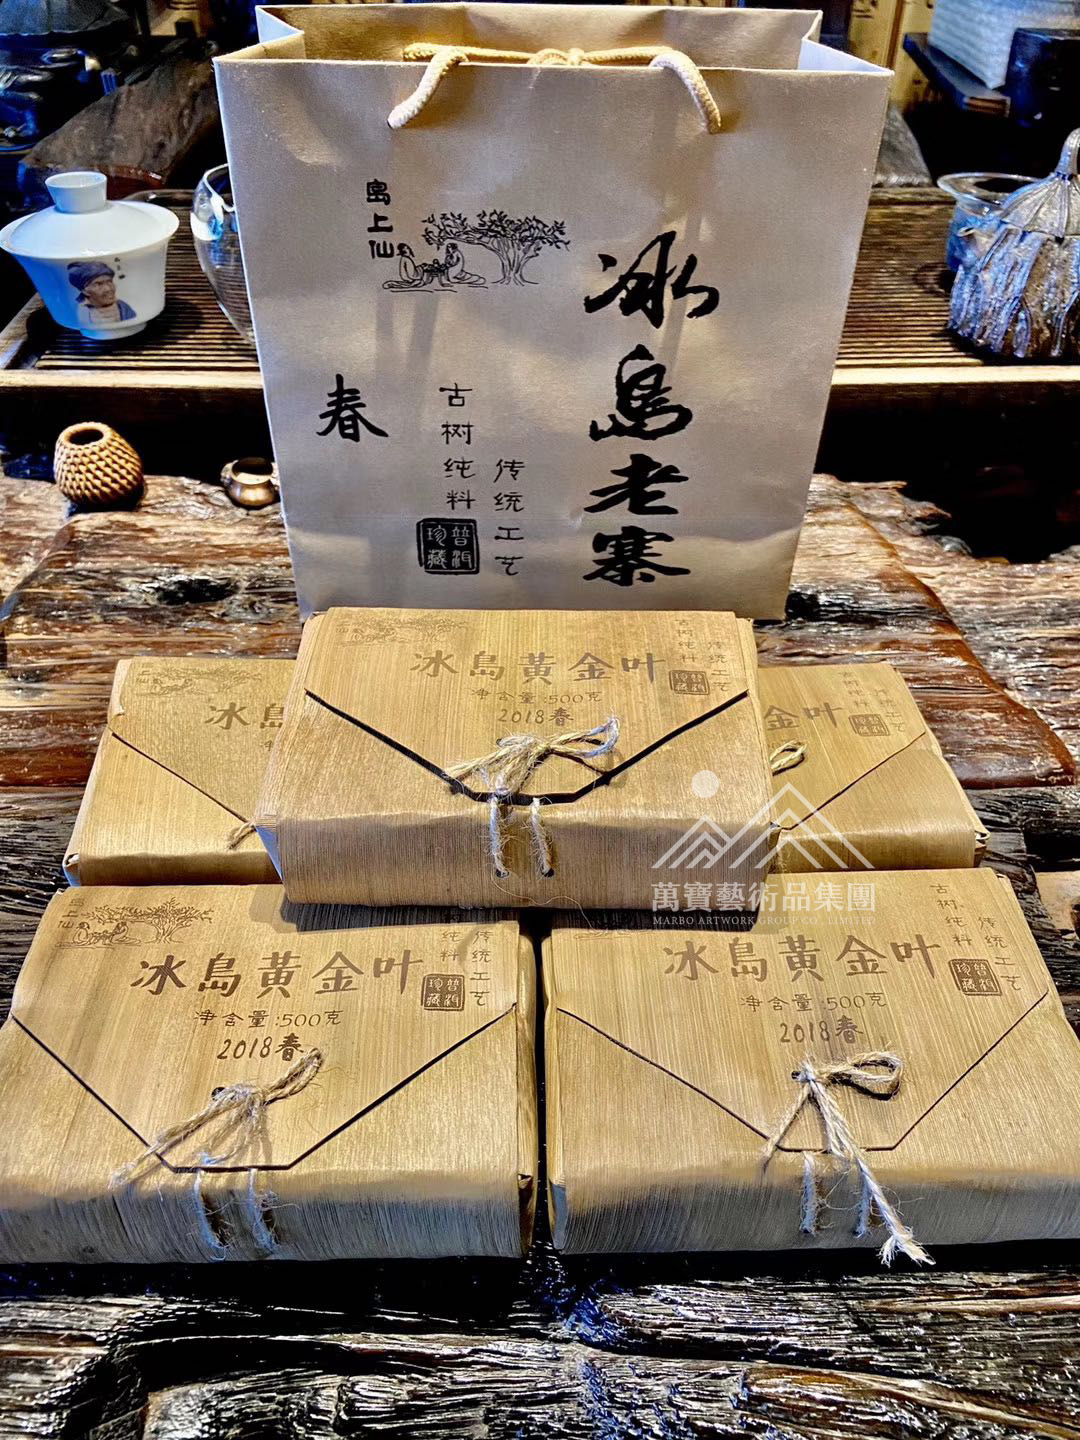 島上仙
冰島老寨
春
古树纯料
传统工艺
普洱珍藏
冰島黃金叶
净含量:500克
2018春
古树纯料
传统工艺
普洱珍藏
冰島
金叶
古树纯料
传统工艺
普洱珍藏
萬寶藝術品集團
MARBO ARTWORK GROUP CO., LIMITED
島上仙
冰島黃金叶
净含量:500克
2018春
纯料
传统工艺
普洱珍藏
冰島黃金叶
净含量:500克
2018春
古树纯料
传统工艺
普洱珍藏